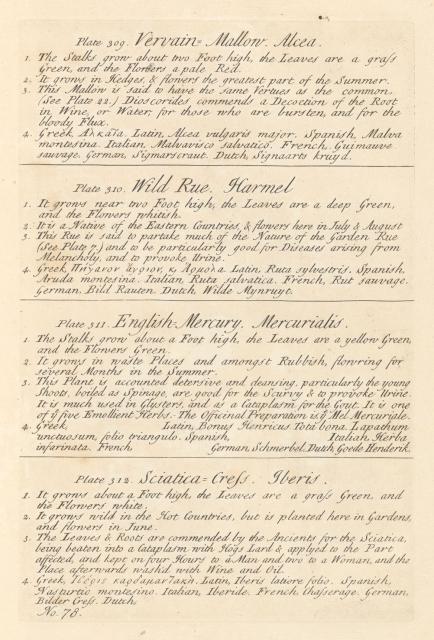 Plate 309. Vervain-Mallow. Alcea.
1. The Stalks grow about two Foot high, the Leaves are a grass
Green, and the Flowers a pale Red.
2. It grows in Hedges, & flowers the greatest part of the Summer.
3. This Mallow is said to have the same Vertues as the common.
(See Plate 22.) Dioscorides commends a Decoction of the Root
in Wine, or Water, for those who are bursten, and for the
bloody Flux.
4. Greek, Αλκαια. Latin, Alcea vulgaris major. Spanish, Malva
montesina. Italian, Malvavisco salvatico. French, Guimauve
sauvage. German, Sigmarscraut. Dutch, Signaarts kruyd.
Plate 310. Wild Rue. Harmel
1. It grows near two Foot high; the Leaves are a deep Green,
and the Flowers whitish.
2. It is a Native of the Eastern Countries, & flowers here in July & August
3. This Rue is said to partake much of the Nature of the Garden Rue
(See Plate 7.) and to be particularly good for Diseases arising from
Melancholy, and to provoke Urine.
4. Greek, Πήγανον ἄγριον, κ Αρμολα. Latin, Ruta sylvestris. Spanish,
Aruda montesina. Italian, Ruta salvatica. French, Rut sauvage.
German, Bild Rauten. Dutch, Wilde Mynruyt.
Plate 311. English-Mercury. Mercurialis.
1. The Stalks grow about a Foot high, the Leaves are a yellow Green,
and the Flowers Green.
2. It grows in waste Places and amongst Rubbish, flowring for
several Months in the Summer.
3. This Plant is accounted detersive and cleansing, particularly the young
Shoots, boiled as Spinage, are good for the Scurvy & to provoke Urine.
It is much used in Glysters, and as a Cataplasm for the Gout. It is one
of ye five Emollient Herbs. The Officinal Preparation is ye Mel Mercuriale.
4. Greek, Latin, Bonus Henricus Tota bona. Lapathum
unctuosum, folio triangulo. Spanish, Italian, Herba
infarinata. French, German, Schmerbel. Dutch, Goede Henderik.
Plate 312. Sciatica-Cress. Iberis.
1. It grows about a Foot high, the Leaves are a grass Green, and
the Flowers white.
2. It grows wild in the Hot Countries, but is planted here in Gardens,
and flowers in June.
3. The Leaves & Roots are commended by the Ancients for the Sciatica,
being beaten into a Cataplasm with Hogs Lard & applyed to the Part
affected, and kept on four Hours to a Man and two to a Woman, and the
Place afterwards wash'd with Wine and Oil.
4. Greek, Latin, Iberis latiore folio. Spanish,
Nasturtio montesino. Italian, Iberide. French, Chasserage. German,
Bilder Cress. Dutch,
No. 78.